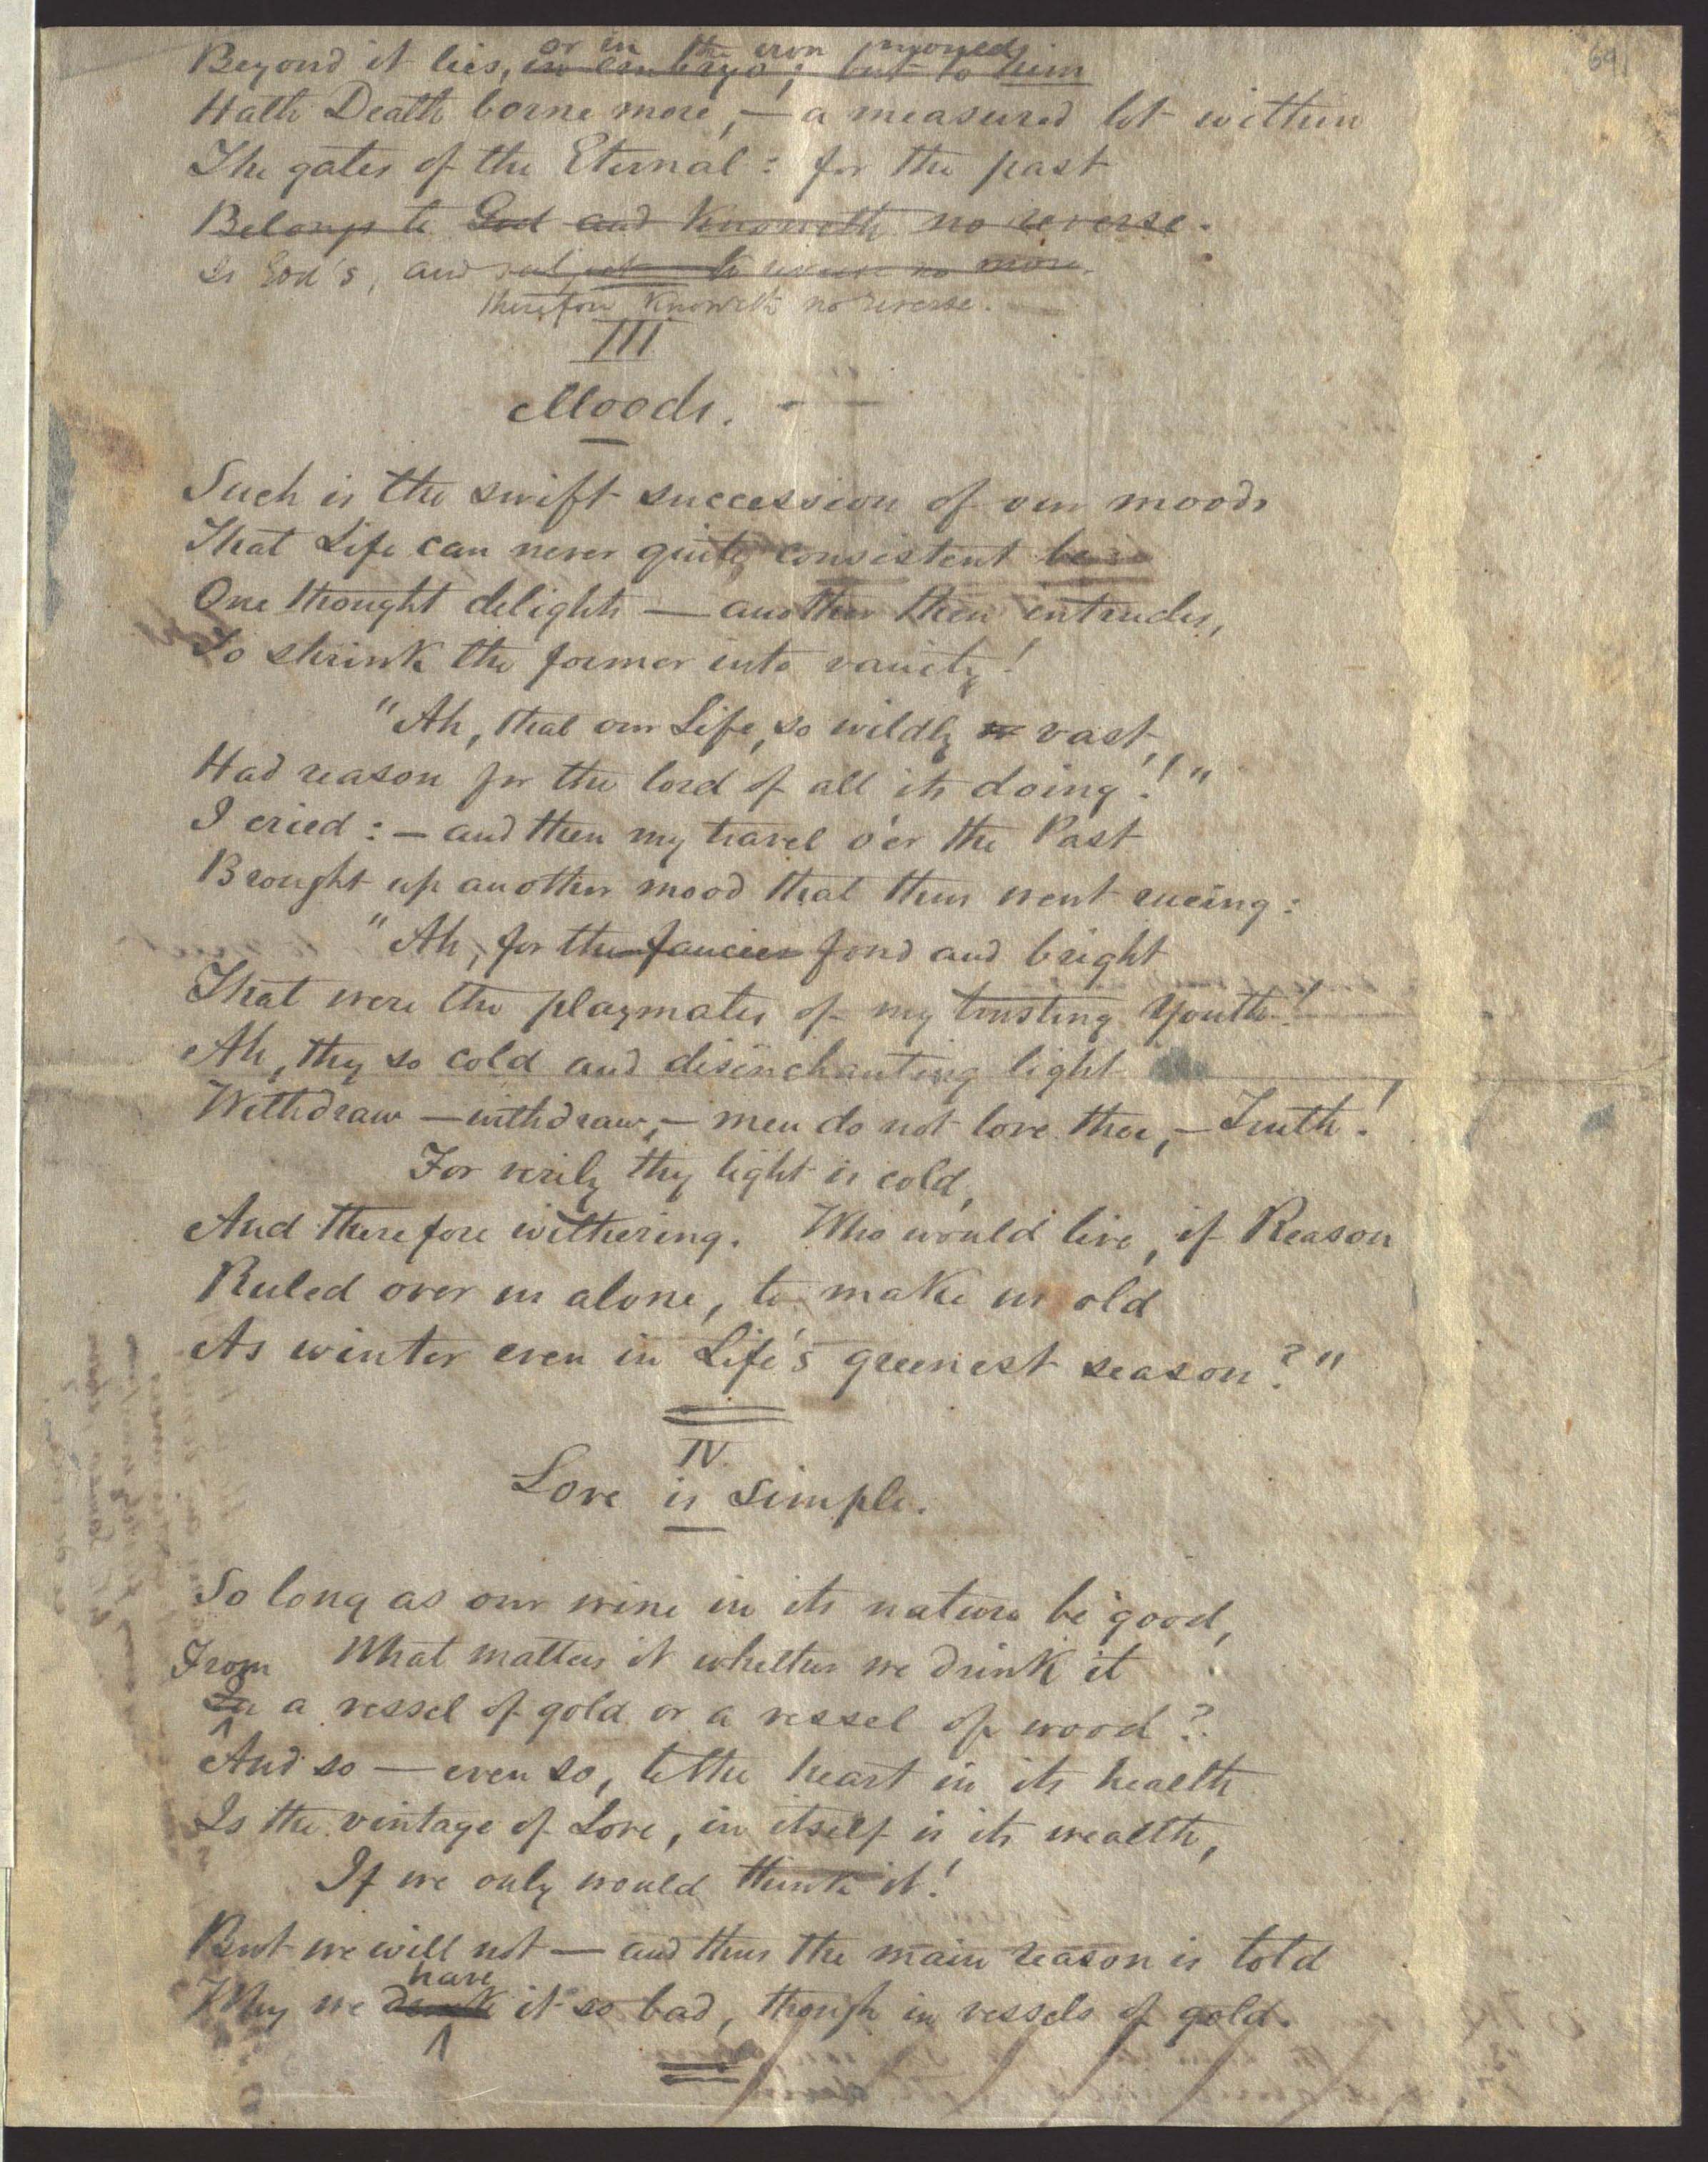 69
or in the
Beyond it lies, in embryo; but to him
Hath Death borne more, — a measured lot within
The gates of the Eternal: for the past
Belongs to God and Knoweth no reverse.
Is God's, and subject to no more.
therefore Knoweth no reverse.
III
Moods.
Such is the swift succession of our moods
That Life can never quite consistent be
One thought delights — another then intrudes,
To shrink the former into vanity!
"Ah, that our Life, so wildly vast,
Had reason for the lord of all its doing!"
I cried: — and then my travel o'er the Past
Brought up another mood that thus went rueing:
"Ah, for the fancies fond and bright
That were the playmates of my trusting Youth!
Ah, thy so cold and disinchanting light
Withdraw — withdraw, — men do not love thee, — Truth!
For verily thy light is cold,
And therefore withering. Who would live, if Reason
Ruled over us alone, to make us old
As winter even in Life's greenest season?"
IV.
Love is Simple.
So long as our wine in its nature be good,
What matters it whether we drink it
From
In a vessel of gold or a vessel of wood?
And so — even so, to the heart in its health
Is the vintage of Love, in itself is its wealth,
If we only would think it!
But we will not — and thus the main reason is told
have
Why we drink it so bad, though in vessels of gold.